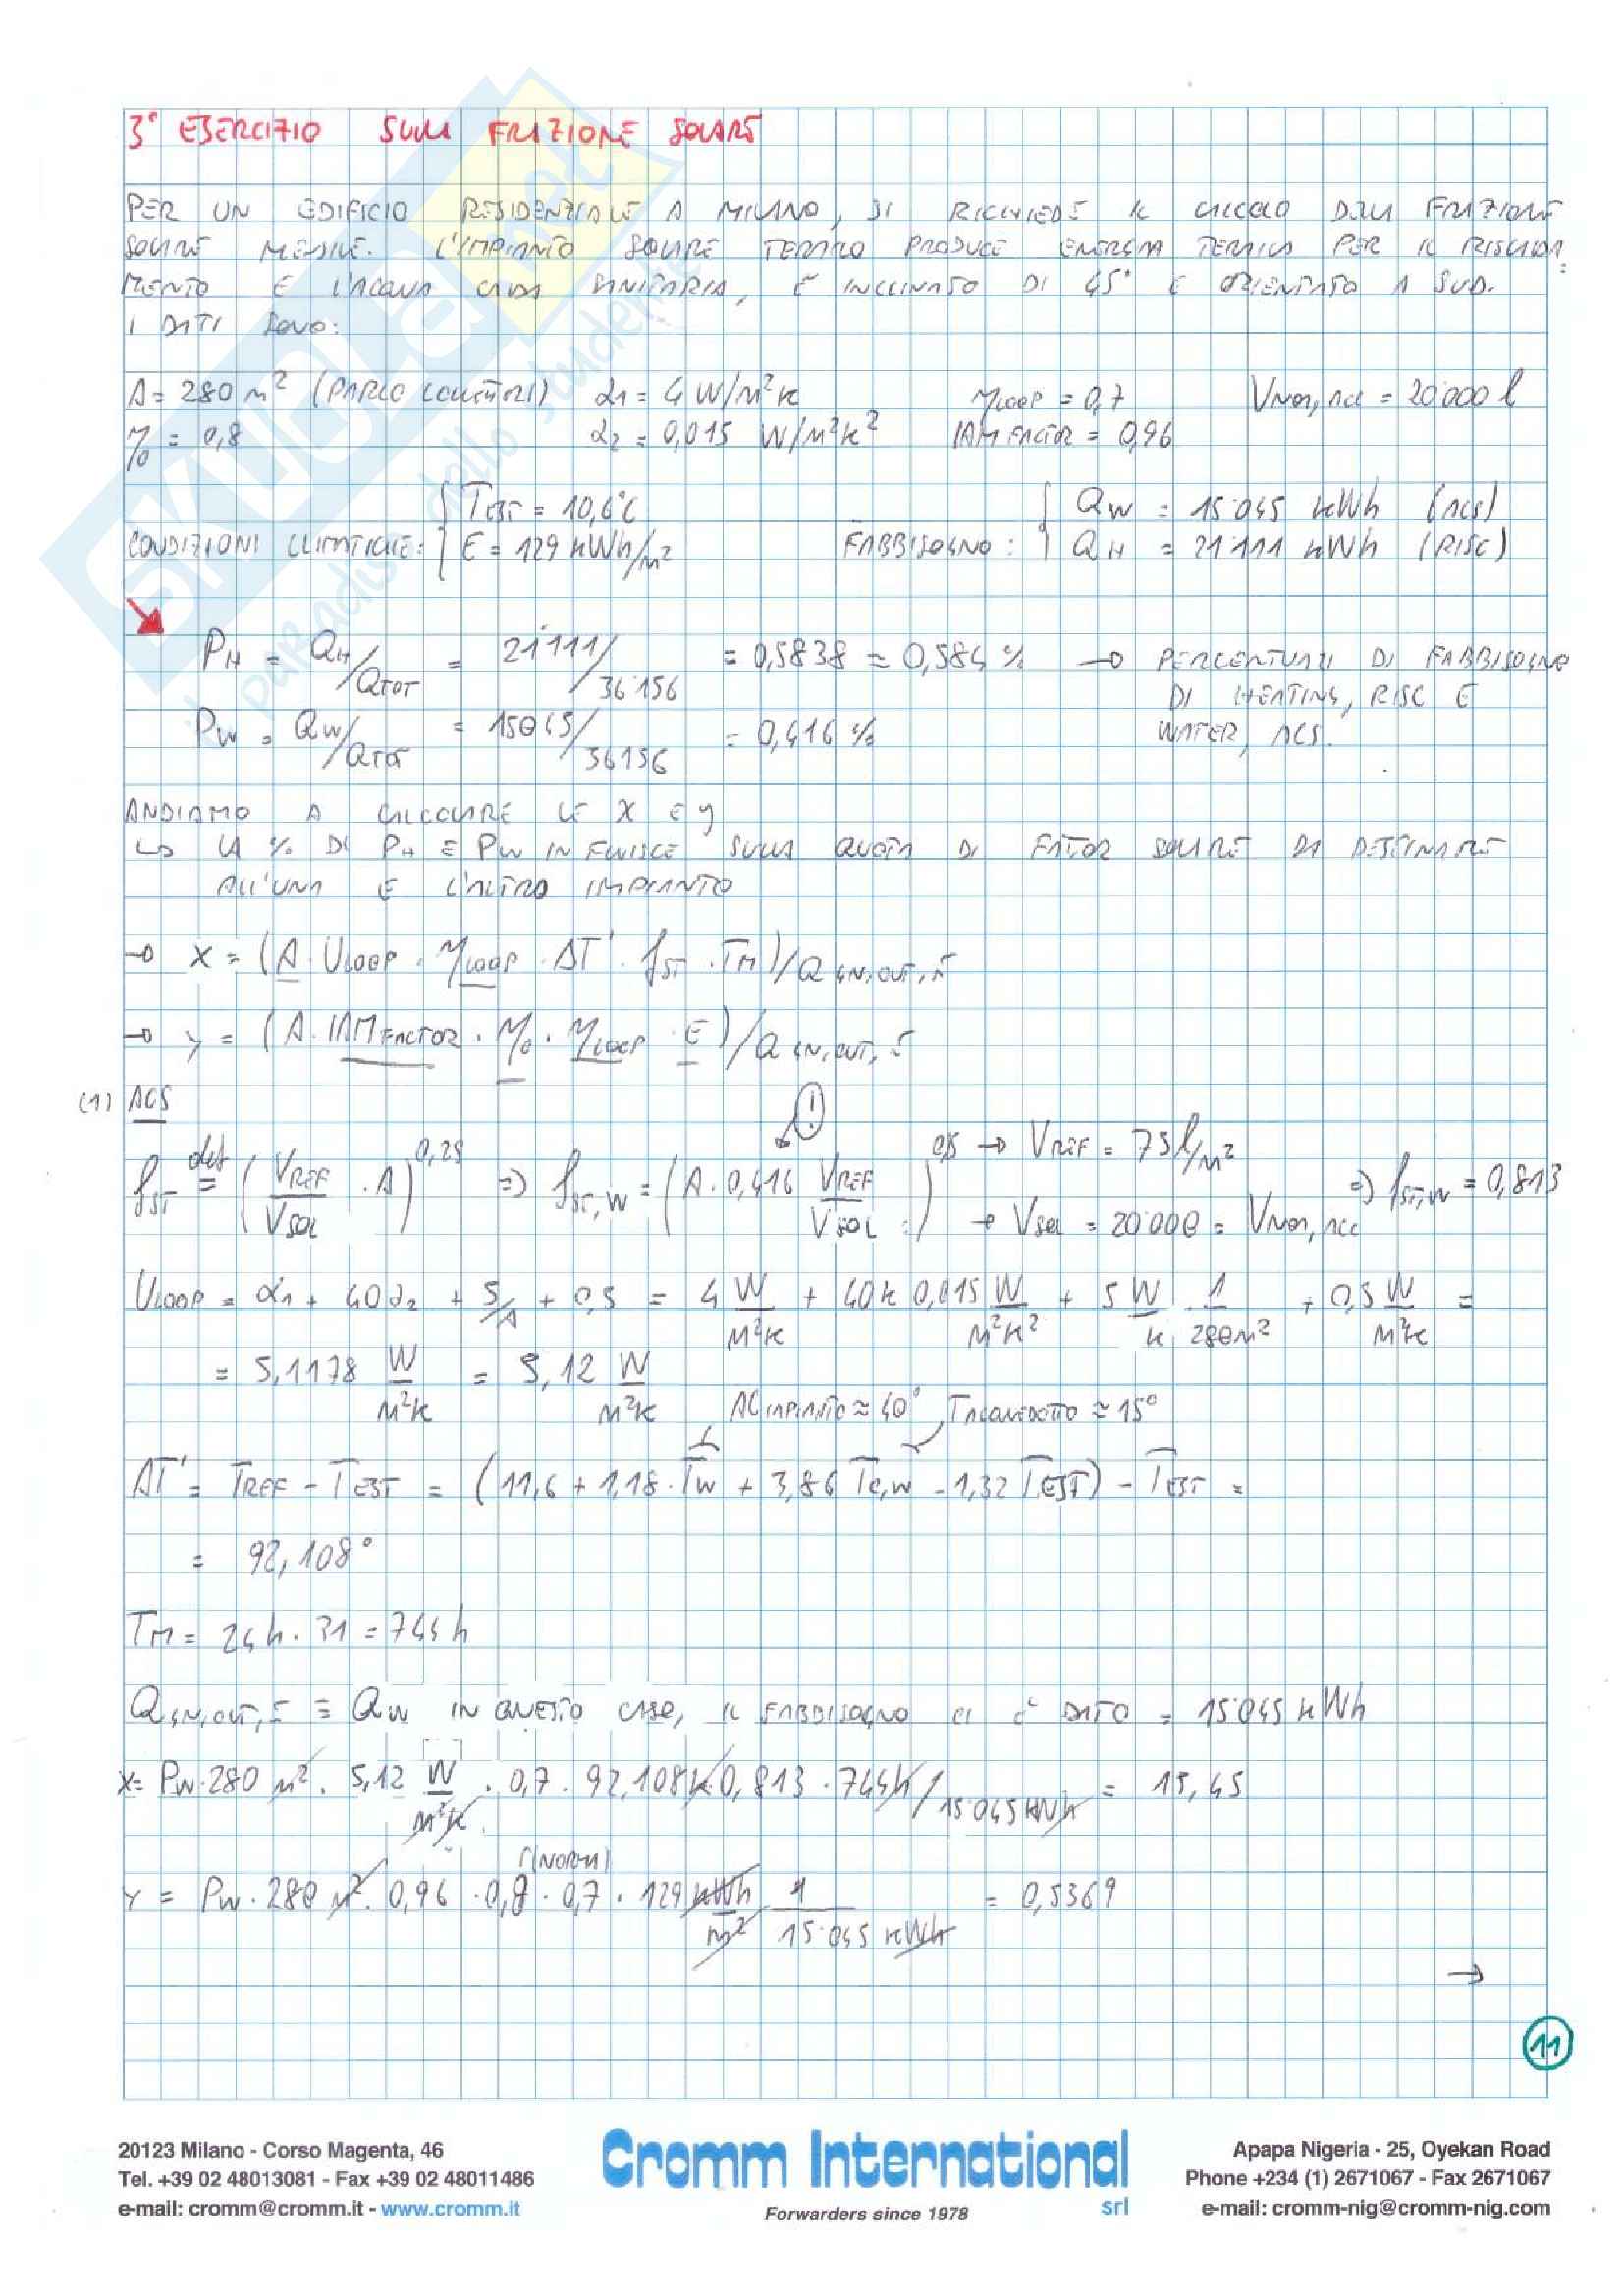 3° ESERCIZIO SULLA FRAZIONE SOLARE
PER UN EDIFICIO RESIDENZIALE A MILANO, SI RICHIEDE IL CALCOLO DELLA FRAZIONE
SOLARE MENSILE. L'IMPIANTO SOLARE TERMICO PRODUCE ENERGIA TERMICA PER IL RISCALDA
MENTO E L'ACQUA CALDA SANITARIA, È INCLINATO DI 45° E ORIENTATO A SUD.
I DATI SONO:
A = 280 m² (PARCO COLLETTORI) α1 = 4 W/m²K ηLOOP = 0,7 VNOM,ACC = 20'000 l
η0 = 0,8 α2 = 0,015 W/m²K² IAM FACTOR = 0,96
CONDIZIONI CLIMATICHE: { TEST = 10,6°C FABBISOGNO: { QW = 15'045 kWh (ACS)
E = 129 kWh/m² QH = 21'111 kWh (RISC)
PH = QH/QTOT = 21'111/36'156 = 0,5838 = 0,584 % → PERCENTUALI DI FABBISOGNO
DI HEATING, RISC E
PW = QW/QTOT = 15045/36156 = 0,416 % WATER, ACS.
ANDIAMO A CALCOLARE LE X E Y
↳ LA % DI PH E PW INFLUISCE SULLA QUOTA DI FATTOR SOLARE DA DESTINARE
ALL'UNA E L'ALTRO IMPIANTO
→ X = (A · ULOOP · ηLOOP · ΔT' · fST · TM)/Q GN,OUT,
→ Y = (A · IAM FACTOR · η0 · ηLOOP · E)/Q GN,OUT,
(1) ACS
fST def= (VREF/VSOL · A)^0,25 ⇒ fST,W = (A · 0,416 VREF/VSOL)^0,25 → VREF = 75 l/m² ⇒ fST,W = 0,813
→ VSOL = 20'000 = VNOM,ACC
ULOOP = α1 + 40α2 + 5/A + 0,5 = 4 W/m²K + 40K 0,015 W/m²K² + 5 W/K · 1/280m² + 0,5 W/m²K =
= 5,1178 W/m²K = 5,12 W/m²K
ACIMPIANTO ≈ 40°, TACQUEDOTTO ≈ 15°
ΔT' = TREF - TEST = (11,6 + 1,18 · TW + 3,86 TC,W - 1,32 TEST) - TEST =
= 92,108°
TM = 24h · 31 = 744 h
QGN,OUT, = QW IN QUESTO CASO, IL FABBISOGNO CI È DATO = 15'045 kWh
X = PW · 280 m² · 5,12 W/m²K · 0,7 · 92,108K · 0,813 · 744h / 15'045 kWh = 15,45
(NORM)
Y = PW · 280 m² · 0,96 · 0,8 · 0,7 · 129 kWh/m² 1/15'045 kWh = 0,5369
→
11
SKUOLA.net
il paradiso dello studente
20123 Milano - Corso Magenta, 46
Tel. +39 02 48013081 - Fax +39 02 48011486
e-mail: cromm@cromm.it - www.cromm.it
Cromm International
srl
Forwarders since 1978
Apapa Nigeria - 25, Oyekan Road
Phone +234 (1) 2671067 - Fax 2671067
e-mail: cromm-nig@cromm-nig.com